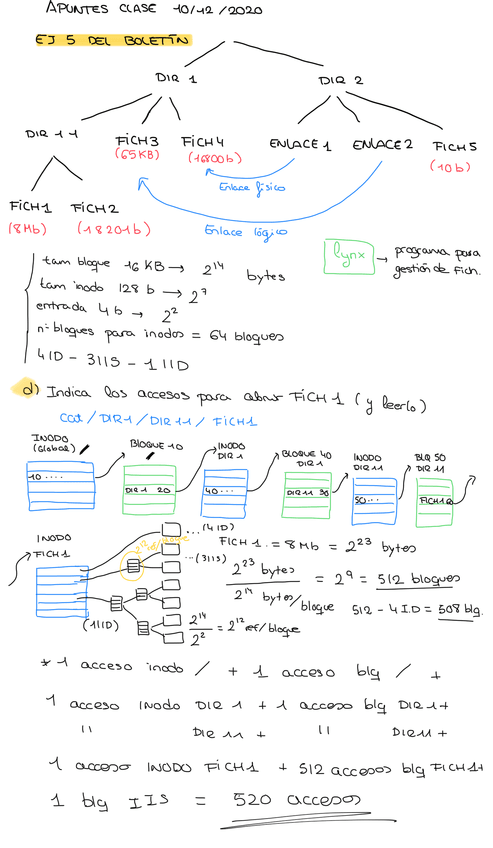 APUNTES CLASE 10/12/2020
EJ 5 DEL BOLETÍN
DIR 1 DIR 2
DIR 11 FICH3 FICH4 ENLACE 1 ENLACE 2 FICH5
(65KB) (16800b) (10b)
Enlace físico
FICH1 FICH2
(8Mb) (18201b)
Enlace lógico
lynx → programa para
gestión de Fich.
tam bloque 16 KB → 2^14 bytes
tam inodo 128 b → 2^7
entrada 4 b → 2^2
nº bloques para inodos = 64 bloques
4ID - 3IIS - 1IID
d) Indica los accesos para abrir FICH1 (y leerlo)
cat /DIR1/DIR11/FICH1
INODO
(Global)
10 ....
BLOQUE 10
DIR 1 20
INODO
DIR 1
40 ...
BLOQUE 40
DIR 1
DIR 11 30
INODO
DIR 11
50...
BLQ 50
DIR 11
INODO
FICH1
... (4ID)
... (3IIS)
(1IID)
2^14
2^2
= 2^12 ref/bloque
FICH1 = 8 Mb = 2^23 bytes
2^23 bytes
2^14 bytes/bloque
= 2^9 = 512 bloques
512 - 4 I.D = 508 blq.
* 1 acceso inodo / + 1 acceso blq / +
1 acceso INODO DIR 1 + 1 acceso blq DIR 1 +
" DIR 11 + " DIR 11 +
1 acceso INODO FICH1 + 512 accesos blq FICH1 +
1 blq IIS = 520 accesos